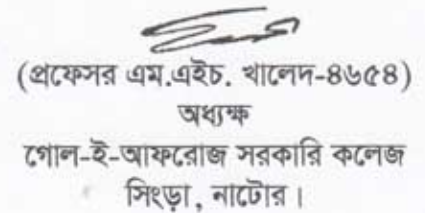 (প্রফেসর এম.এইচ. খালেদ-৪৬৫৪)
অধ্যক্ষ
গোল-ই-আফরোজ সরকারি কলেজ
সিংড়া, নাটোর।